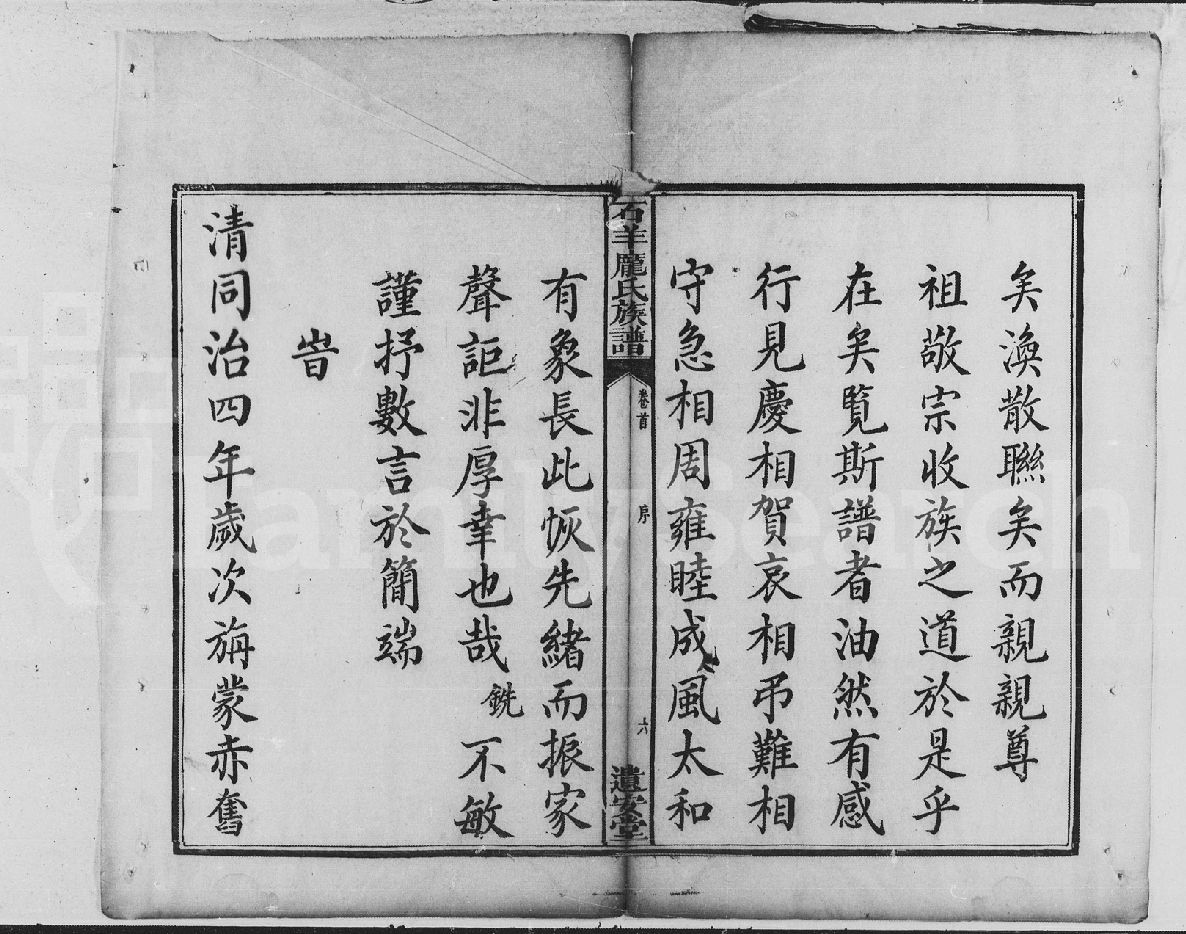 矣渙散聯矣而親親尊
祖敬宗收族之道於是乎
在矣覧斯譜者油然有感
行見慶相賀哀相弔難相
守急相周雍睦成風太和
石羊龐氏族譜
卷首
序
六
遺安堂
有象長此恢先緒而振家
聲詎非厚幸也哉銑不敏
謹抒數言於簡端
旹
清同治四年歲次旃蒙赤奮
FamilySearch